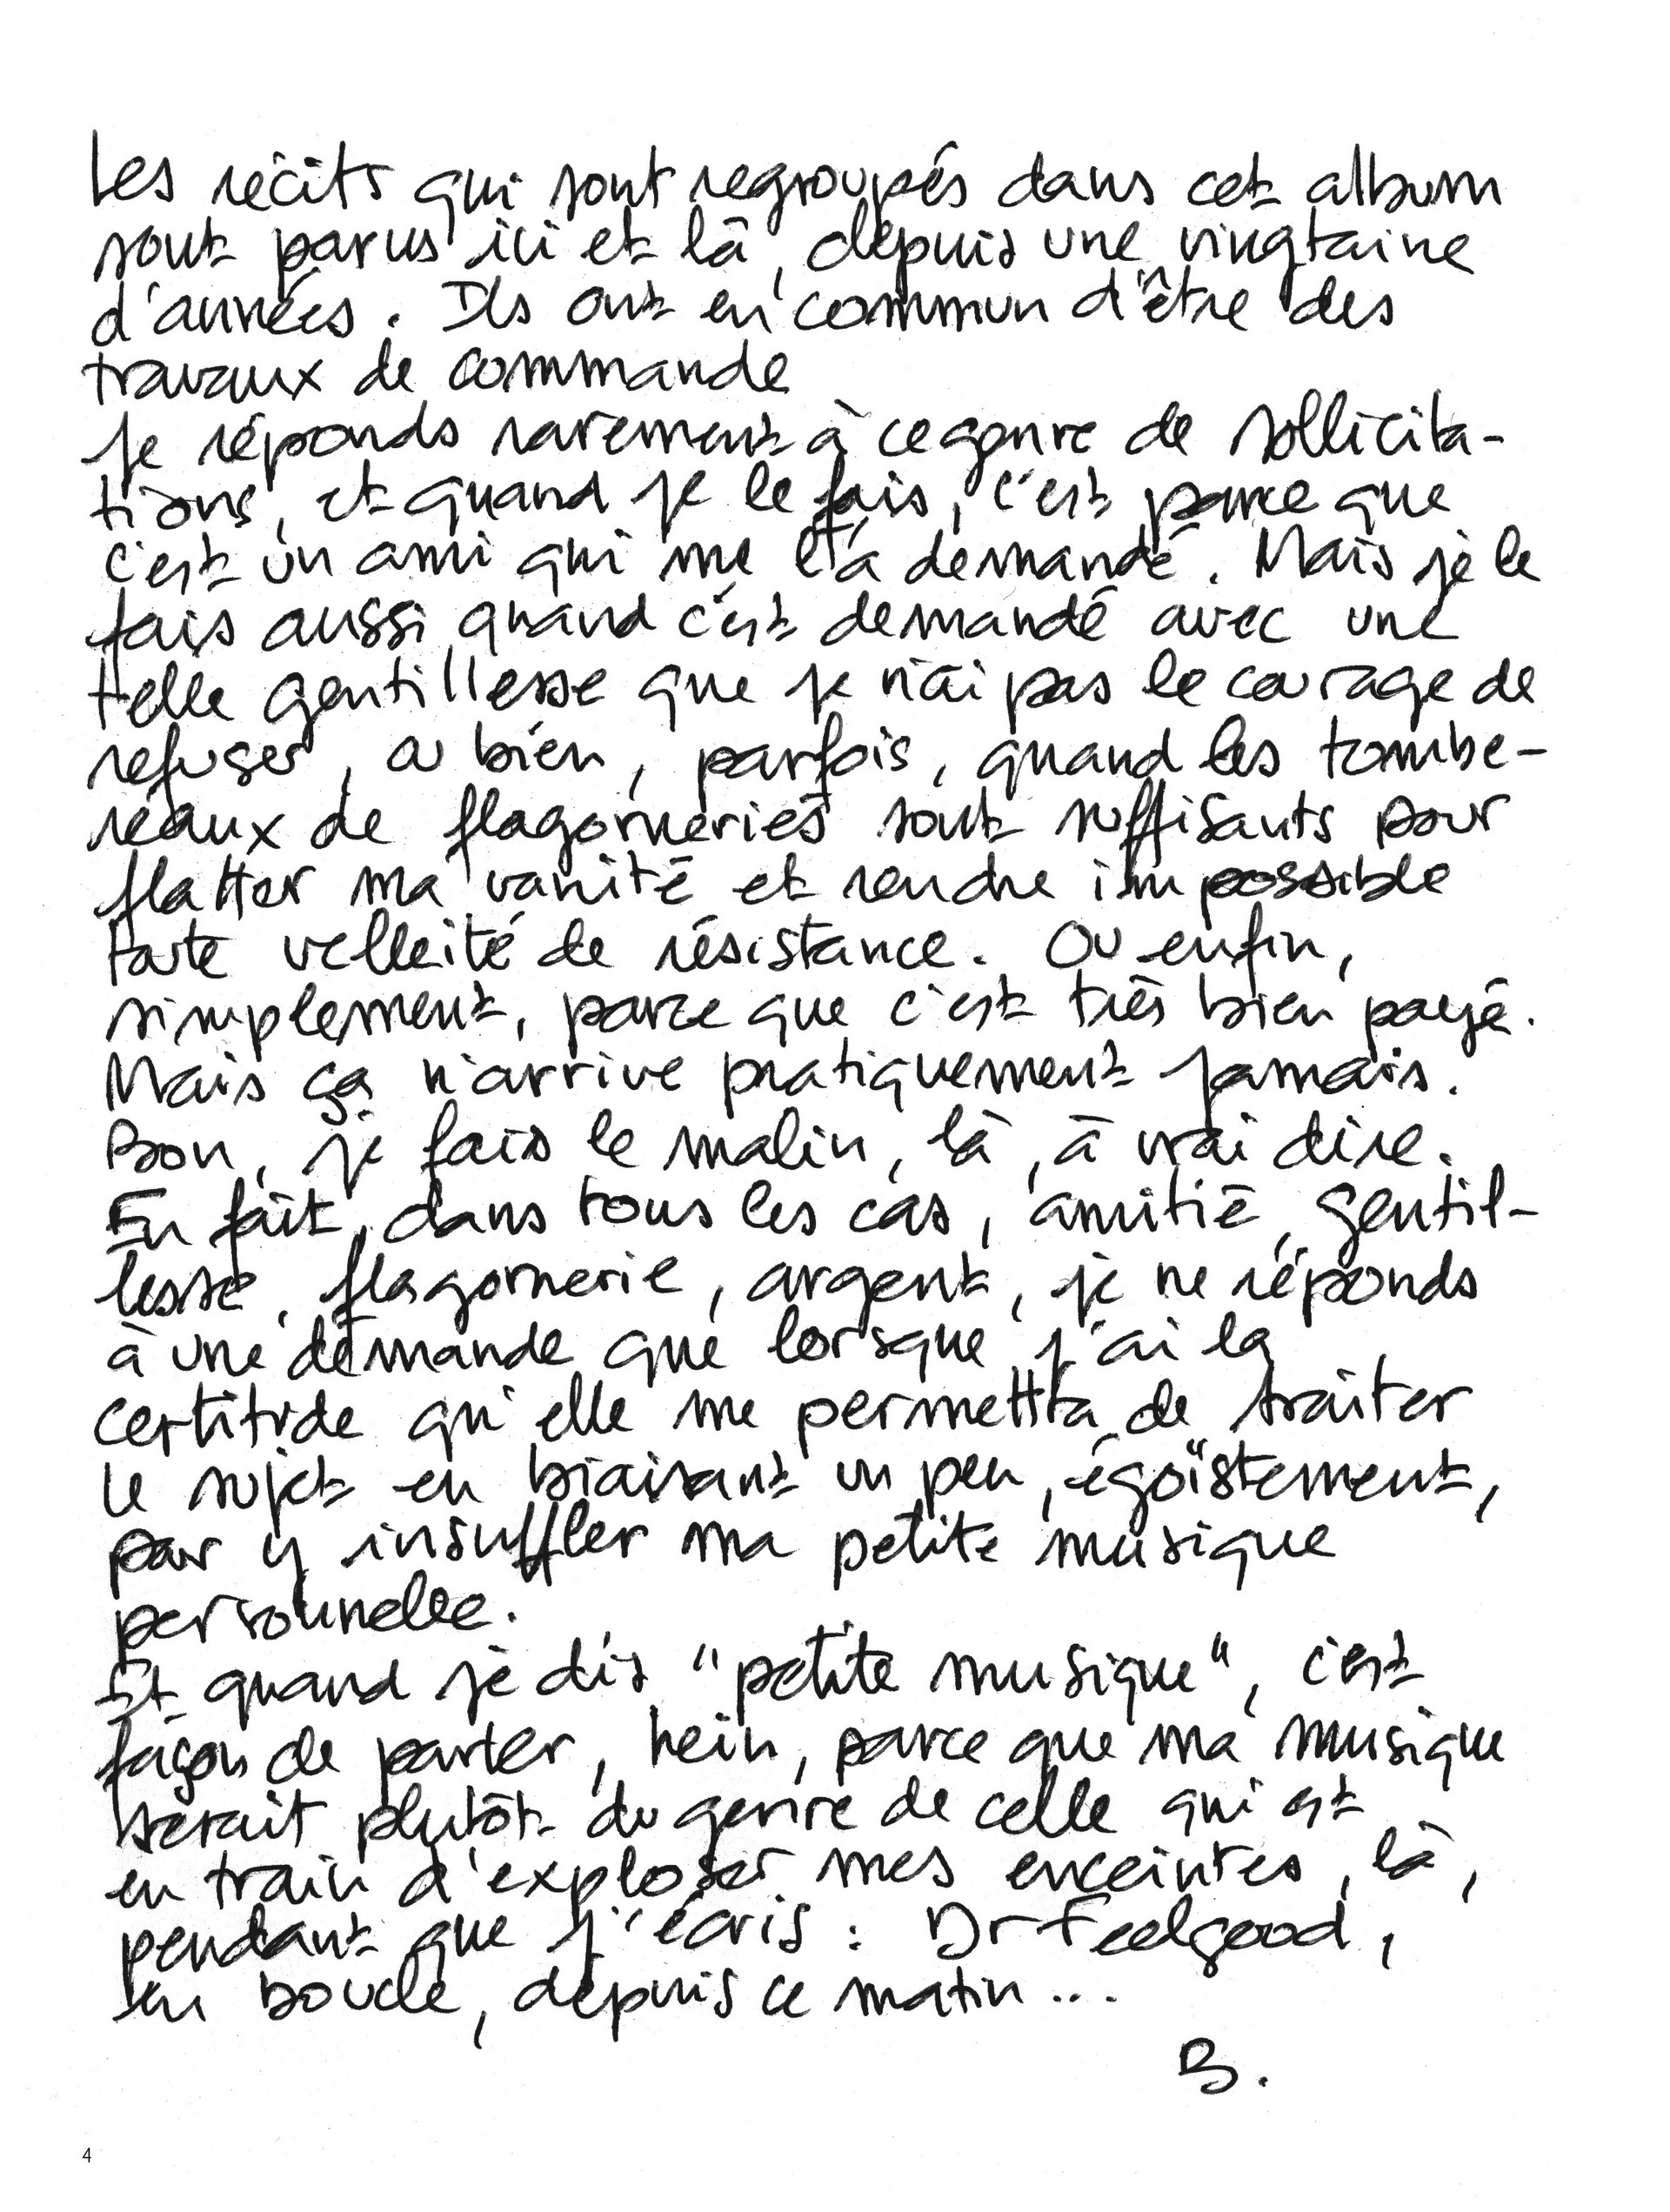 Les récits qui sont regroupés dans cet album
sont parus ici et là, depuis une vingtaine
d'années. Ils ont en commun d'être des
travaux de commande
Je réponds rarement à ce genre de sollicita-
tions, et quand je le fais, c'est parce que
c'est un ami qui me l'a demandé. Mais je le
fais aussi quand c'est demandé avec une
telle gentillesse que je n'ai pas le courage de
refuser, ou bien, parfois, quand les tombe-
reaux de flagorneries sont suffisants pour
flatter ma vanité et rendre impossible
toute velleité de résistance. Ou enfin,
simplement, parce que c'est très bien payé.
Mais ça n'arrive pratiquement jamais.
Bon, je fais le malin, là, à vrai dire.
En fait, dans tous les cas, amitié, gentil-
lesse, flagornerie, argent, je ne réponds
à une demande que lorsque j'ai la
certitude qu'elle me permettra de traiter
le sujet en biaisant un peu, égoïstement,
pour y insuffler ma petite musique
personnelle.
Et quand je dis "petite musique", c'est
façon de parler, hein, parce que ma musique
serait plutôt du genre de celle qui est
en train d'exploser mes enceintes, là,
pendant que j'écris : Dr Feelgood,
en boucle, depuis ce matin...
B.
4